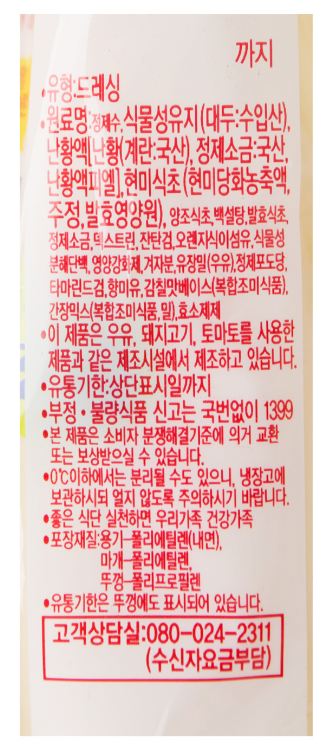 까지
•유형:드레싱
•원료명:정제수,식물성유지(대두:수입산),
난황액[난황(계란:국산), 정제소금:국산,
난황액피엘],현미식초(현미당화농축액,
주정,발효영양원), 양조식초,백설탕,발효식초,
정제소금,덱스트린,잔탄검,오렌지식이섬유,식물성
분해단백,영양강화제,겨자분,유장밀(우유),정제포도당,
타마린드검,향미유,감칠맛베이스(복합조미식품),
간장믹스(복합조미식품,밀),효소제제
•이 제품은 우유, 돼지고기, 토마토를 사용한
제품과 같은 제조시설에서 제조하고 있습니다.
•유통기한:상단표시일까지
•부정·불량식품 신고는 국번없이 1399
•본 제품은 소비자 분쟁해결기준에 의거 교환
또는 보상받으실 수 있습니다.
•0℃이하에서는 분리될 수도 있으니, 냉장고에
보관하시되 얼지 않도록 주의하시기 바랍니다.
•좋은 식단 실천하면 우리가족 건강가족
•포장재질:용기-폴리에틸렌(내면),
마개-폴리에틸렌,
뚜껑-폴리프로필렌
•유통기한은 뚜껑에도 표시되어 있습니다.
고객상담실:080-024-2311
(수신자요금부담)